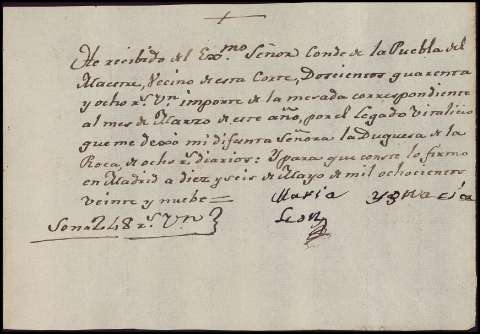 He recibido del Exmo Señor Conde de la Puebla del
Maestre, Vecino de esta Corte, Doscientos quarenta
y ocho rs. Vn. importe de la mesada correspondiente
al mes de Marzo de este año, por el Legado Vitalicio
que me dexó mi difunta Señora la Duquesa de la
Roca, de ocho rs. diarios: Y para que conste lo firmo
en Madrid a diez y seis de Mayo de mil ochocientos
veinte y nuebe=
Maria Ygnacia
Son 248 rs. Vn
Leon